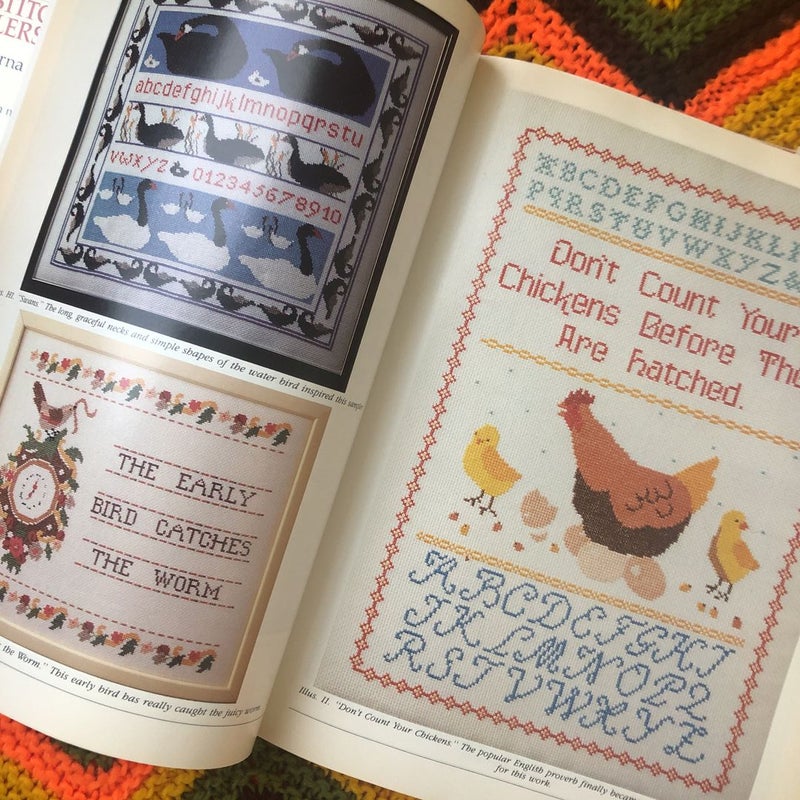 STITC
LERS
rna
abcdefghijklmnopqrstu
vwxyz
012345678910
s. H1. "Swans." The long, graceful necks and simple shapes of the water bird inspired this sampler
THE EARLY
BIRD CATCHES
THE WORM
the Worm." This early bird has really caught the juicy worm.
ABCDEFGHIJKL
PQRSTUVWXYZ&
Don't Count Your
Chickens Before The
Are hatched.
ABCDEFGHI
JKLMNOPQ
RSTUVWXYZ
Illus. I1. "Don't Count Your Chickens." The popular English proverb finally becam
for this work.